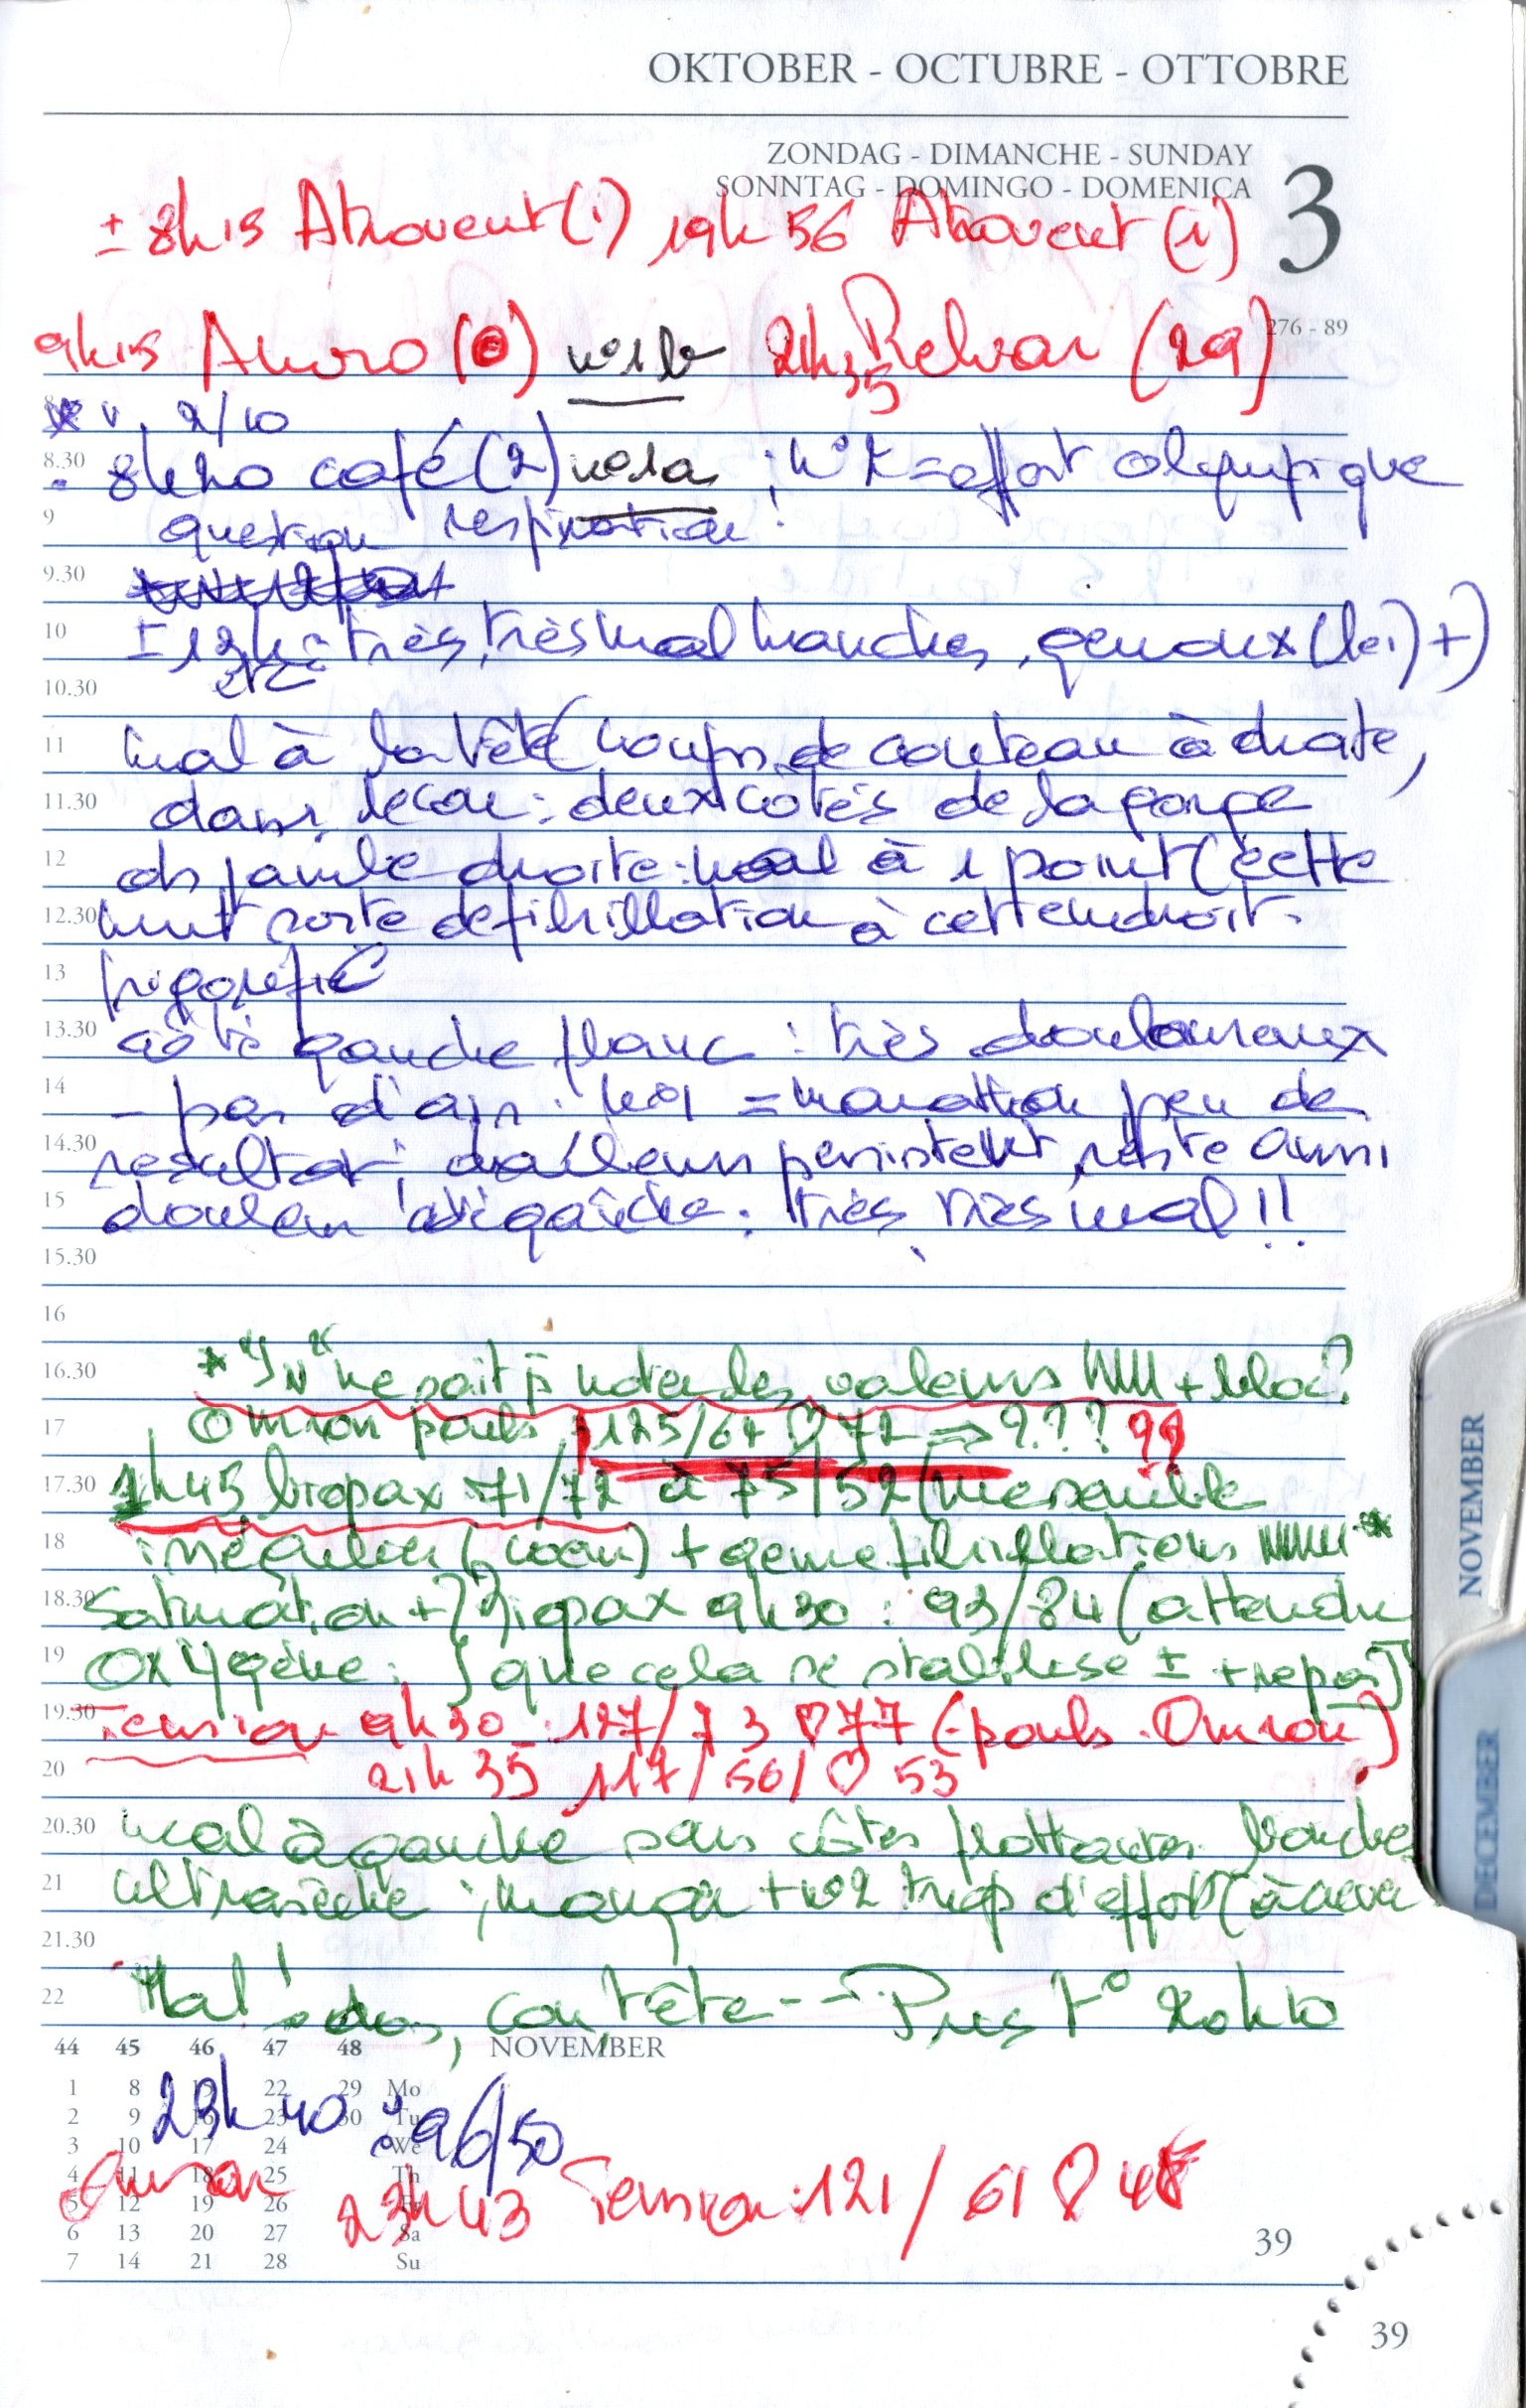 OKTOBER - OCTUBRE - OTTOBRE
ZONDAG - DIMANCHE - SUNDAY
SONNTAG - DOMINGO - DOMENICA
3
± 8h15 Atrovent (1) 19h56 Atrovent (1)
276 - 89
9h15 (0) n°1b 21h35 Relvar (29)
v. 2/10
8.30 8h20 café (2) n°1a ; n°2 = effort olympique
9 question respiration !
9.30
10 ± 12h : très, très mal hanches, genoux (lei) +)
etc
10.30
11 mal à la tête (coups de couteau à droite,
11.30 dans le cou : deux côtés de la gorge
12 jambe droite : mal à 1 point (cette
12.30 nuit sorte de fibrillation à cet endroit.
13 frigorifié
13.30 côté gauche flanc : très douloureux
14 - pas d'air : n°1 = marathon peu de
14.30 résultat ; douleurs persistent, reste aussi
15 douleur côté gauche : très très mal !!
15.30
16
16.30 * ne sait p noter les valeurs + bloc ?
17 Omron pouls 125/64 ♡ 72 ⇒ ? ? ? ??
17.30 1h45 biopax 71/72 à 75/52 (me semble
18 irrégulier + genre fibrillations *
18.30 Saturation + Biopax 9h30 : 93/84 (attendre
19 Oxygène : que cela se stabilise ± + repos)
19.30 Tension 9h30 : 127/73 ♡ 77 (pouls Omron)
20 21h35 117/56/ ♡ 53
20.30 mal à gauche sous côtes flottantes. bouche
21 ultrasèche ; mangé + n°2 trop d'effort
21.30
22 Mal : dos, cou, tête -- Pris t° 20h10
44 45 46 47 48 NOVEMBER
1 8 15 22 29 Mo
2 9 16 23 30 Tu
3 10 17 24 We
4 11 18 25 Th
5 12 19 26 Fr
6 13 20 27 Sa
7 14 21 28 Su
23h40 : 96/50
Omron 23h43 Tension : 121/61 ♡ 48
39
39
NOVEMBER
DECEMBER